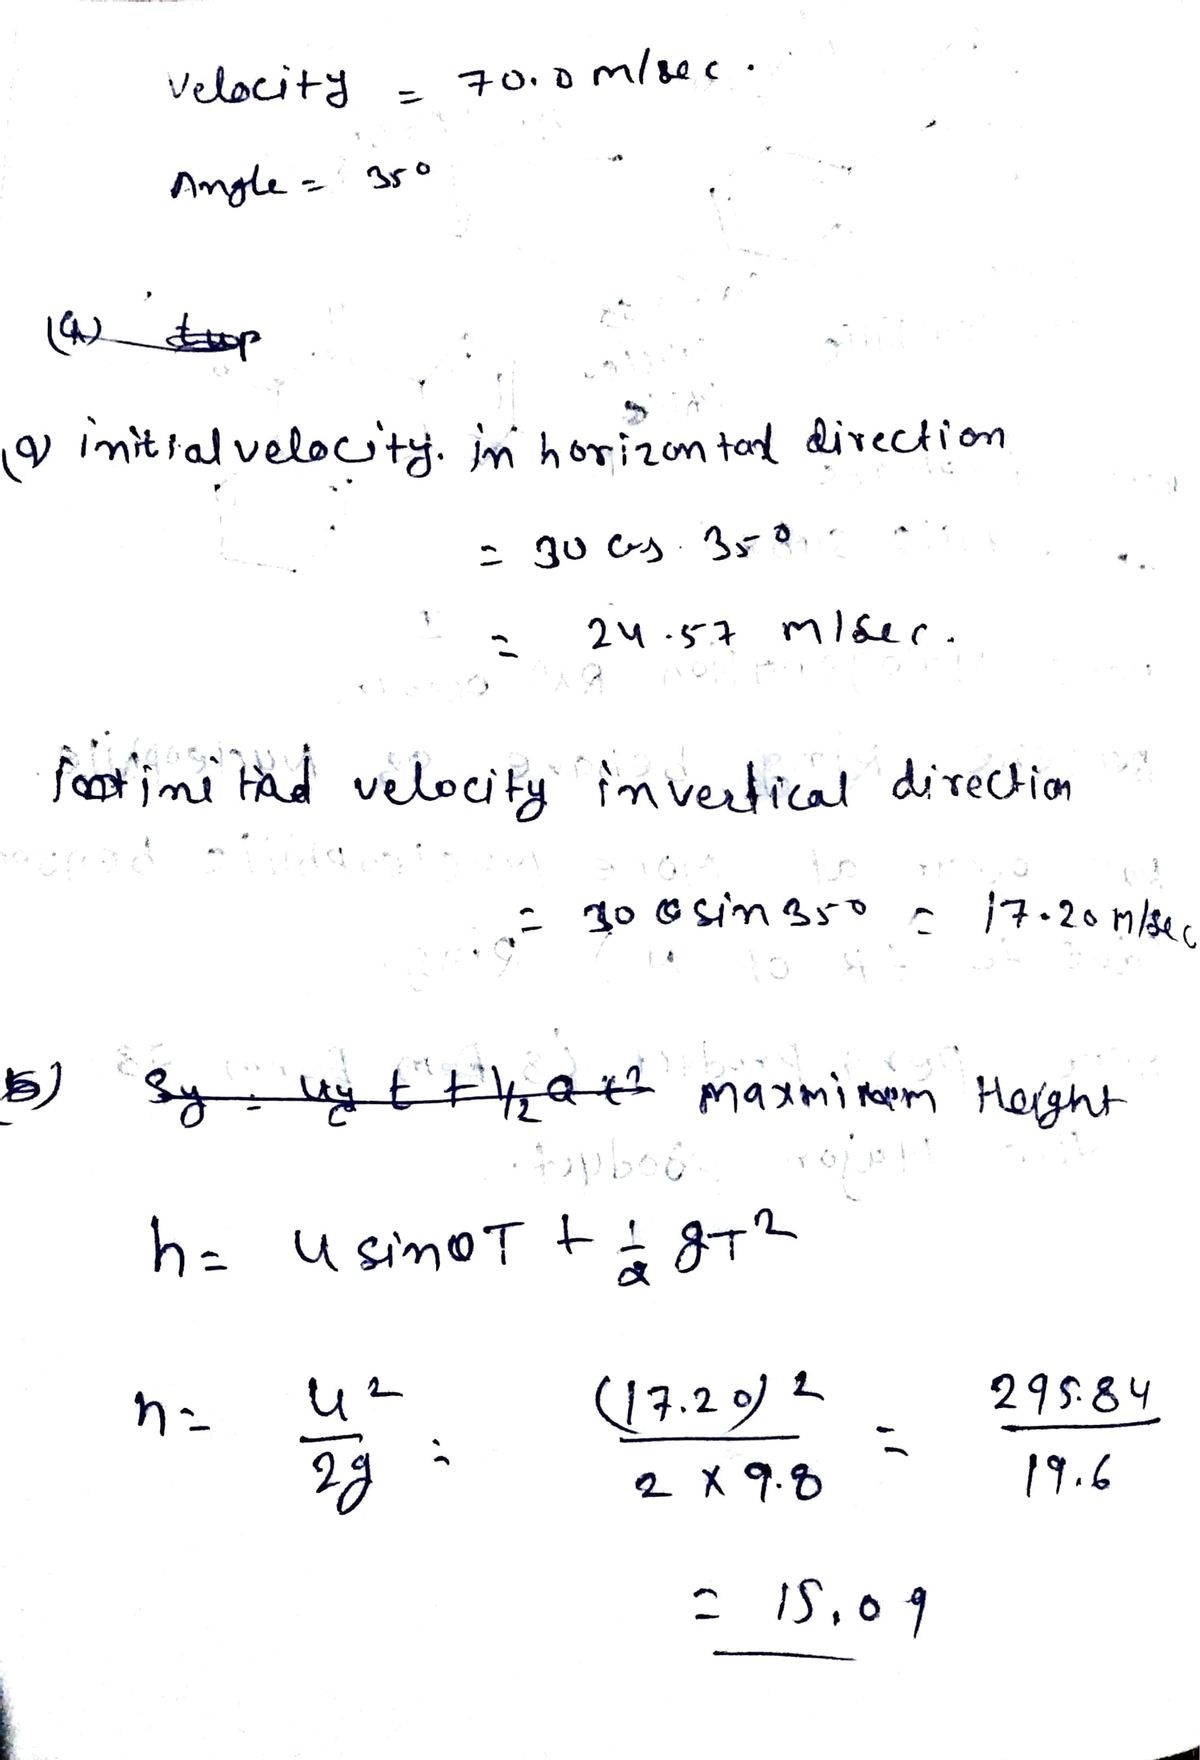 Velocity = 70.0 m/sec.
Angle = 35°
(a)
(a) initial velocity. in horizontal direction
= 30 cos 35°
= 24.57 m/sec.
initial velocity in vertical direction
= 30 sin 35° = 17.20 m/sec
b) Sy = uy t + 1/2 a t² maxmimum Height
h = u sinθT + 1/2 gT²
h = u²/2g = (17.20)²/2 × 9.8 = 295.84/19.6
= 15.09